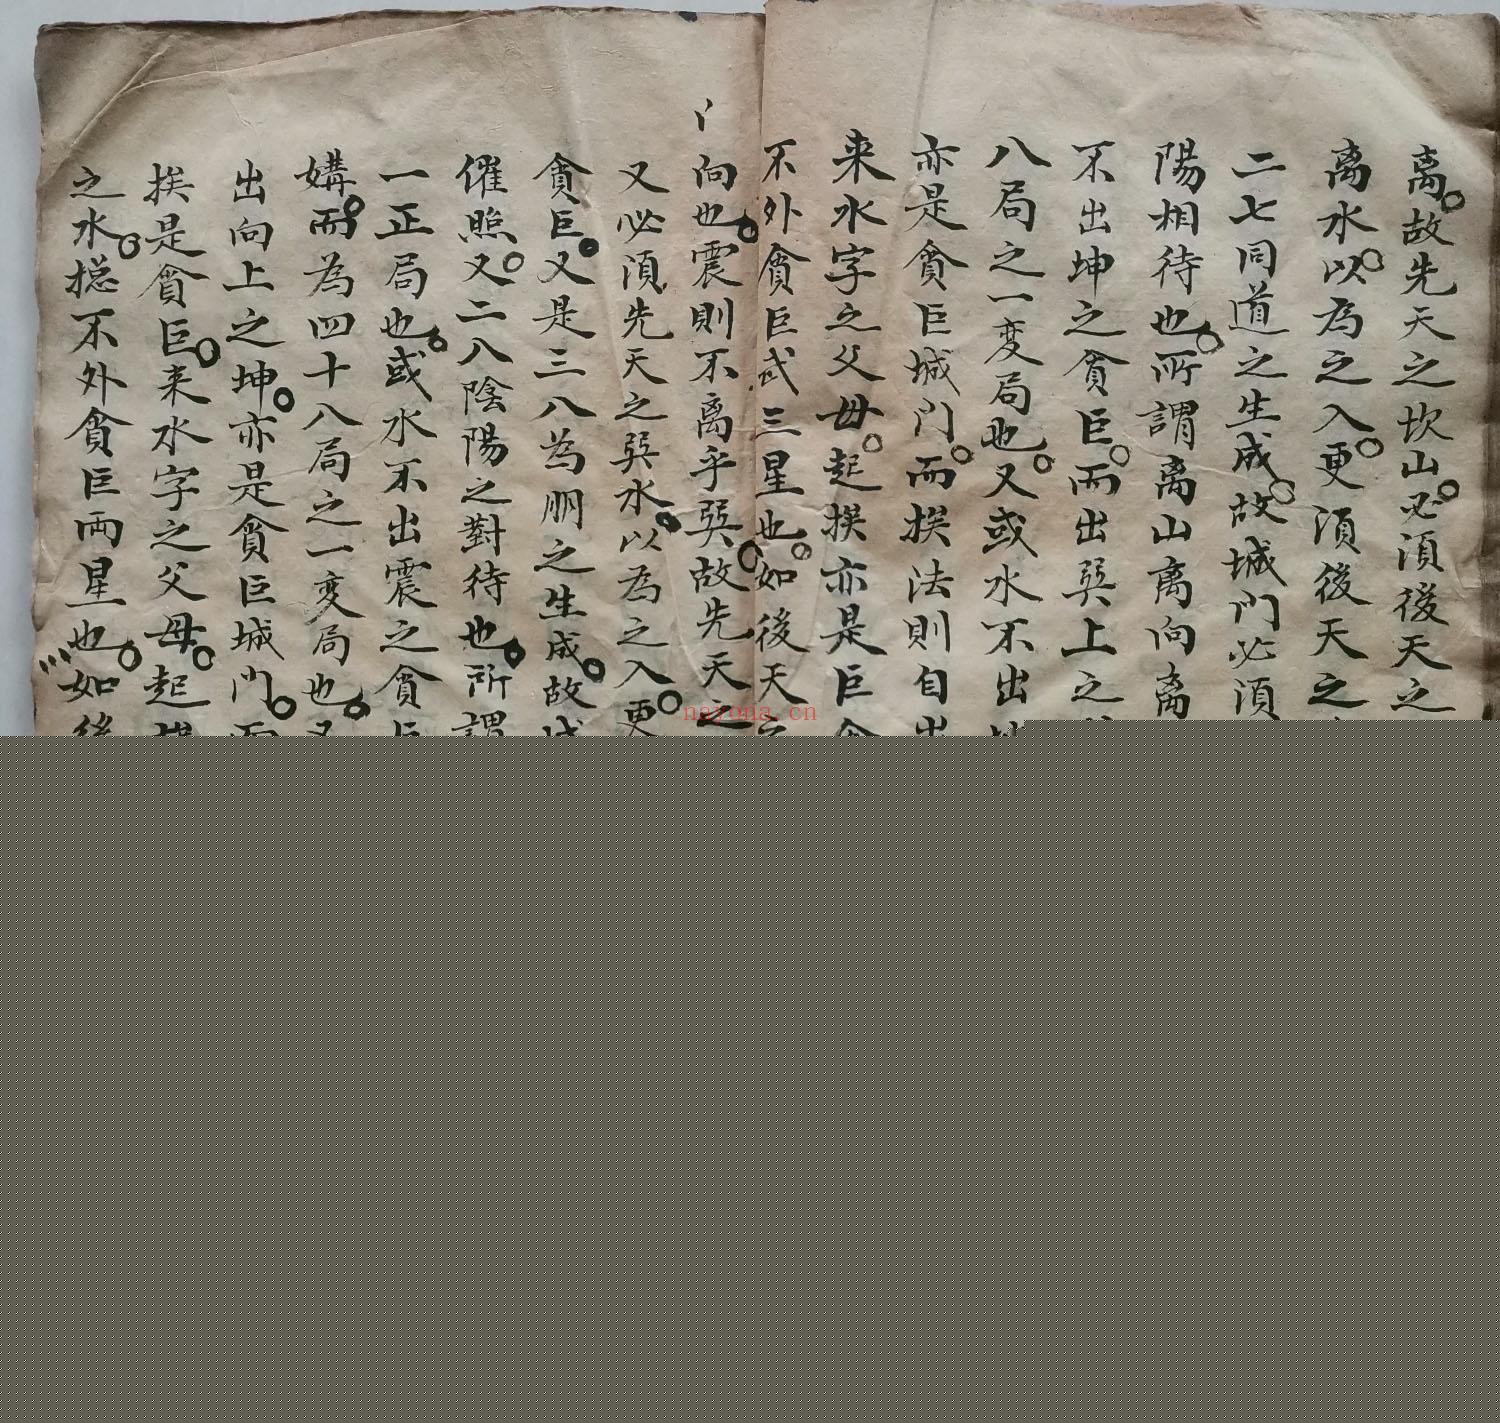 离故先天之坎山必湏後天之
离水以為之入更湏後天之
二七同道之生成故城門必湏
陽相待也所謂离山离向离
不出坤之貪巨而出巽上之
八局之一变局也又或水不出
亦是貪巨城门而挨法則自出
来水字之父母起挨亦是巨貪
不外貪巨武三星也如後天之
向也震則不离乎巽故先天之
又必湏先天之巽水以為之入更
貪巨又是三八為朋之生成故城
催照又二八陰陽之對待也所謂
一正局也或水不出震之貪巨
媾而為四十八局之一变局也又
出向上之坤亦是貪巨城门而
挨是貪巨来水字之父母起挨
之水捴不外貪巨両星也如後
nayona.cn